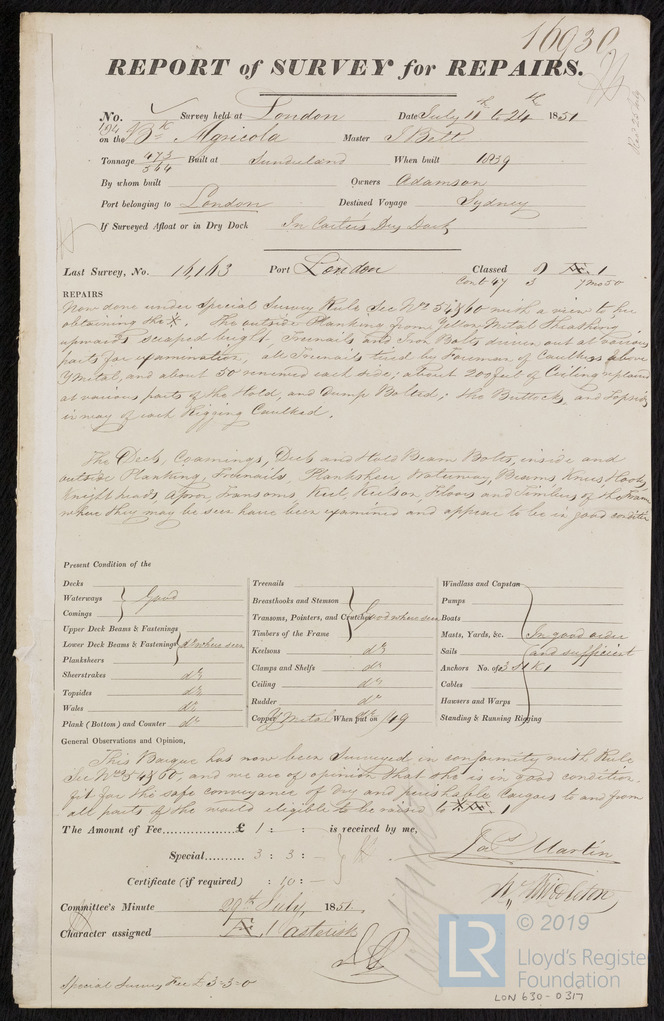 16930
REPORT of SURVEY for REPAIRS.
No. 194 Survey held at London Date July 11th to 24th 1851
on the Bk Agricola Master J Bell
Tonnage 473 / 544 Built at Sunderland When built 1839
By whom built Owners Adamson
Port belonging to London Destined Voyage Sydney
If Surveyed Afloat or in Dry Dock In Carter's Dry Dock
Last Survey, No. 16,163 Port London Classed Æ 1
Cont 47 3 7 mo 50
REPAIRS
Now done under Special Survey Rule Sec Nos 54 & 60 with a view to her
obtaining the *. The outside Planking from Yellow Metal Sheathing
upwards scraped bright, Treenails and Iron Bolts driven out at various
parts for examination, all Treenails tried by Foreman of Caulkers above
Y Metal, and about 50 renewed each side; about 200 feet of Ceiling replaced
at various parts of the Hold, and Dump Bolted; the Buttocks, and Topsides
in way of each Rigging Caulked.
The Deck, Coamings, Deck and Hold Beam Bolts, inside and
outside Planking, Treenails, Planksheer, Waterway, Beams, Knees, Hooks,
Knightheads, Apron, Transoms, Keel, Keelson, Floors and Timbers of the Frame
where they may be seen have been examined and appear to be in good condition
Present Condition of the
Decks
Waterways Good
Comings
Upper Deck Beams & Fastenings
Lower Deck Beams & Fastenings do where seen
Planksheers
Sheerstrakes do
Topsides do
Wales do
Plank (Bottom) and Counter do
Treenails
Breasthooks and Stemson
Transoms, Pointers, and Crutches Good where seen
Timbers of the Frame
Keelsons do
Clamps and Shelfs do
Ceiling do
Rudder do
Copper Y Metal When put on /49
Windlass and Capstan
Pumps
Boats
Masts, Yards, &c. In good order
Sails and sufficient
Anchors No. of 3 S 1 K 1
Cables
Hawsers and Warps
Standing & Running Rigging
General Observations and Opinion,
This Barque has now been Surveyed in conformity with Rule
Sec Nos 54 & 60, and we are of opinion that she is in good condition
fit for the safe conveyance of Dry and perishable Cargoes to and from
all parts of the world eligible to be raised to * Æ 1
The Amount of Fee £ 1 : : is received by me,
Special 3 : 3 : Jas Martin
Certificate (if required) : 10 : Wm Middleton
Committee's Minute 29th July, 1851
Character assigned Æ 1 asterisk
Special Survey Fee £ 3=3=0
© 2019
LR Lloyd's Register
Foundation
LON 630-0317